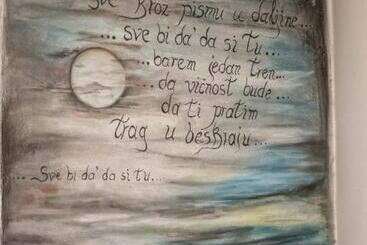 sve kroz pismu u daljine...
...sve bi da' da si tu...
...barem jedan tren...
...da vičnost bude...
da ti pratim
trag u beskraju...
...Sve bi da' da si tu...